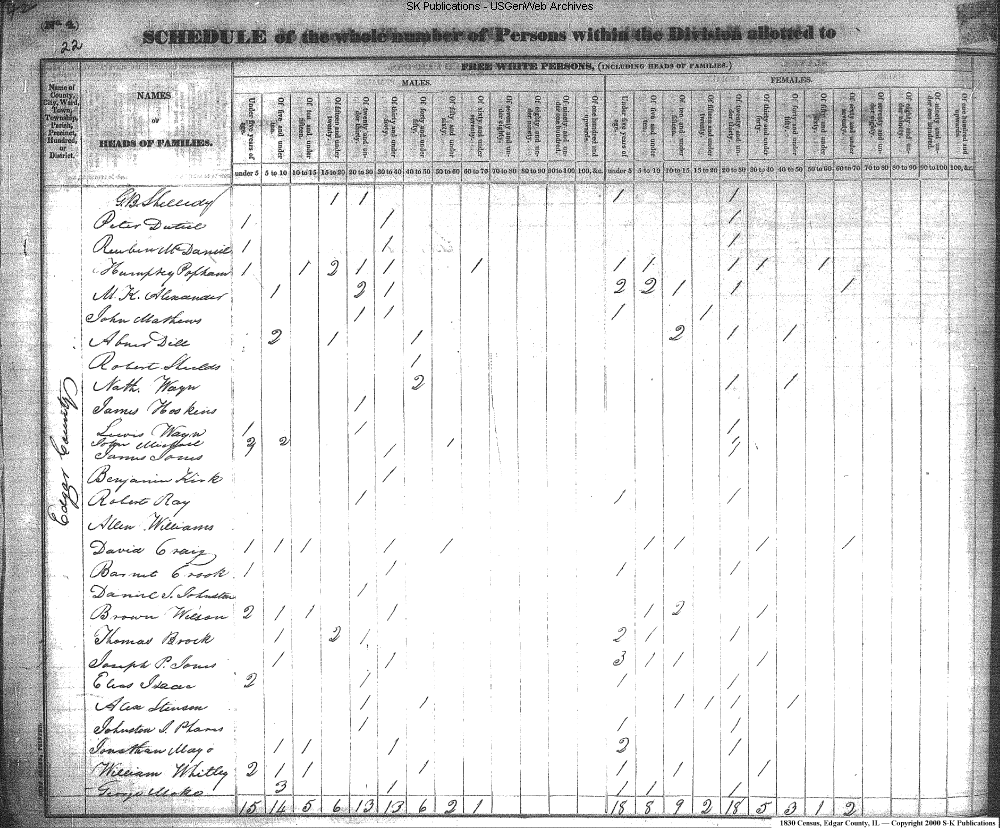 SK Publications - USGenWeb Archives
(No. 4)
22
SCHEDULE of the whole number of Persons within the Division allotted to
FREE WHITE PERSONS, (INCLUDING HEADS OF FAMILIES.)
MALES. FEMALES.
Name of County, City, Ward, Town, Township, Parish, Precinct, Hundred, or District.
NAMES
OF
HEADS OF FAMILIES.
under 5 5 to 10 10 to 15 15 to 20 20 to 30 30 to 40 40 to 50 50 to 60 60 to 70 70 to 80 80 to 90 90 to 100 100, &c. under 5 5 to 10 10 to 15 15 to 20 20 to 30 30 to 40 40 to 50 50 to 60 60 to 70 70 to 80 80 to 90 90 to 100 100, &c.
Edgar County
G.B. Shelledy 1 1 1 1
Peter 1 1 1
Reuben McDaniel 1 1 1
Humphrey Popham 1 1 2 1 1 1 1 1 1 1 1
M. K. Alexander 1 2 1 2 2 1 1 1
John Mathews 1 1 1 1
Abner Dill 2 1 1 2 1 1
Robert Shields 1
Nath. Wayn 2 1 1
James Hoskins 1
Lewis Wayn 1 1 1
John 2 2 1
James Jones 1
Benjamin Kirk 1
Robert Ray 1 1 1
Allen Williams
David Craig 1 1 1 1 1 1 1 1 1
Barnet Crook 1 1 1 1
Daniel S. Johnston 1
Brown Wilson 2 1 1 1 1 2 1
Thomas Brock 1 2 1 2 1 1
Joseph P. Jones 1 1 3 1 1 1
Elias Isaac 2 1 1 1
Alex Stenson 1 1 1 1 1 1
Johnston J. Phares 1 1 1
Jonathan Mayo 1 1 1 2 1
William Whitley 2 1 1 1 1 1 1
3 1 1 1 1
15 14 5 6 13 13 6 2 1 18 8 9 2 18 5 3 1 2
1830 Census, Edgar County, IL — Copyright 2000 S-K Publications